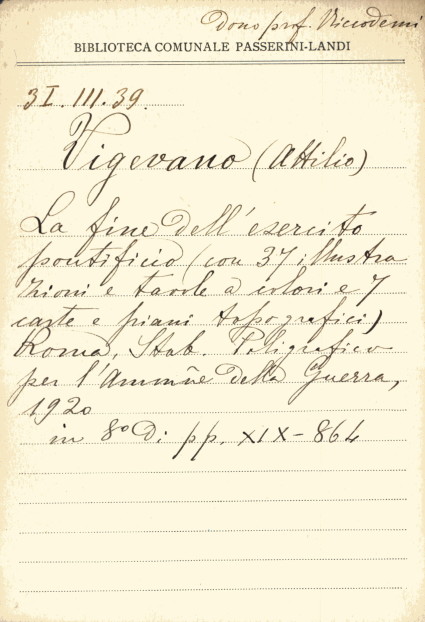 dono prof. Nicodemi
BIBLIOTECA COMUNALE PASSERINI-LANDI
3I. III. 39.
Vigevano (Attilio)
La fine dell'esercito
pontificio (con 37 illustra
zioni e tavole a colori e 7
carte e piani topografici)
Roma, Stab. Poligrafico
per l'Ammñe della Guerra,
1920
in 8º di pp. XIX-864